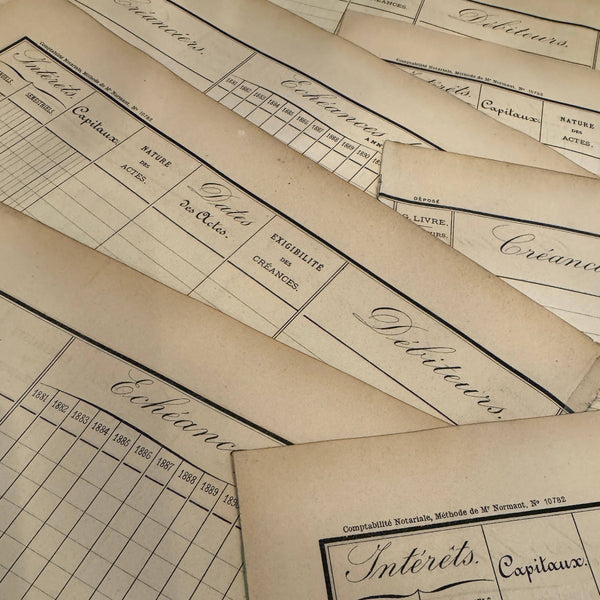 Créanciers.
Débiteurs.
Comptabilité Notariale, Méthode de Mr Normant, No 10782
Intérêts.
Capitaux.
NATURE
DES
ACTES.
Echéances
1881 1882 1883 1884 1885 1886 1887 1888 1889 1890
Comptabilité Notariale, Méthode de Mr Normant, No 10782
Intérêts.
SEMESTRIELS.
Capitaux.
NATURE
DES
ACTES.
Dates
des Actes.
EXIGIBILITÉ
DES
CRÉANCES.
Débiteurs.
DÉPOSÉ
G. LIVRE.
Echéanc
1881 1882 1883 1884 1885 1886 1887 1888 1889
Comptabilité Notariale, Méthode de Mr Normant, No 10782
Intérêts.
Capitaux.